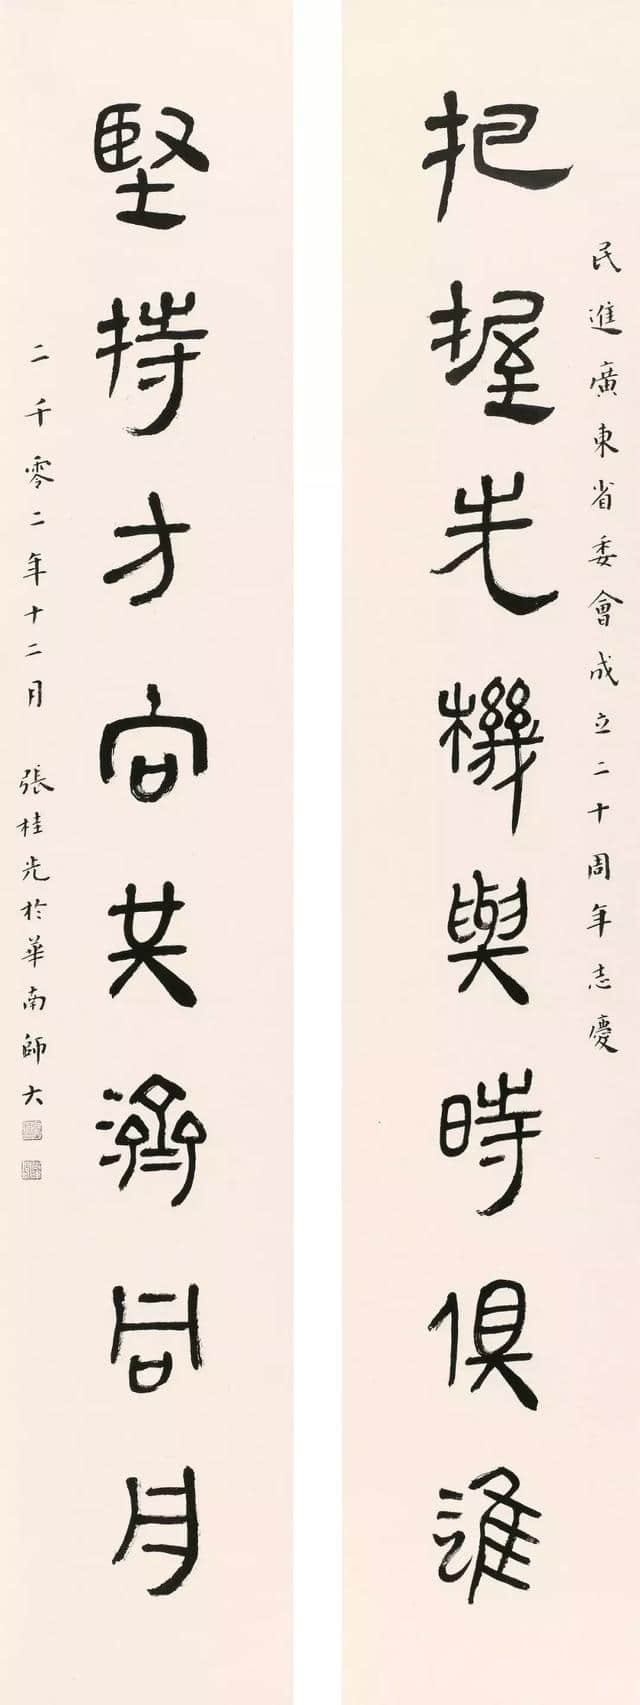 民進廣東省委會成立二十周年志慶
把握先機與時俱進
堅持方向共濟同舟
二千零二年十二月 張桂光於華南師大